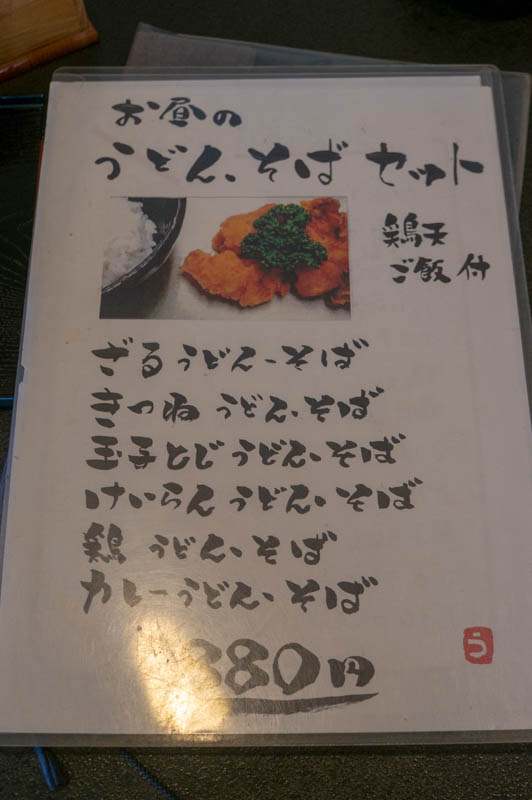 お昼の
うどん、そば セット
鶏天
ご飯 付
ざるうどん、そば
きつね うどん、そば
玉子とじ うどん、そば
けいらん うどん、そば
鶏 うどん、そば
カレーうどん、そば
880円
う